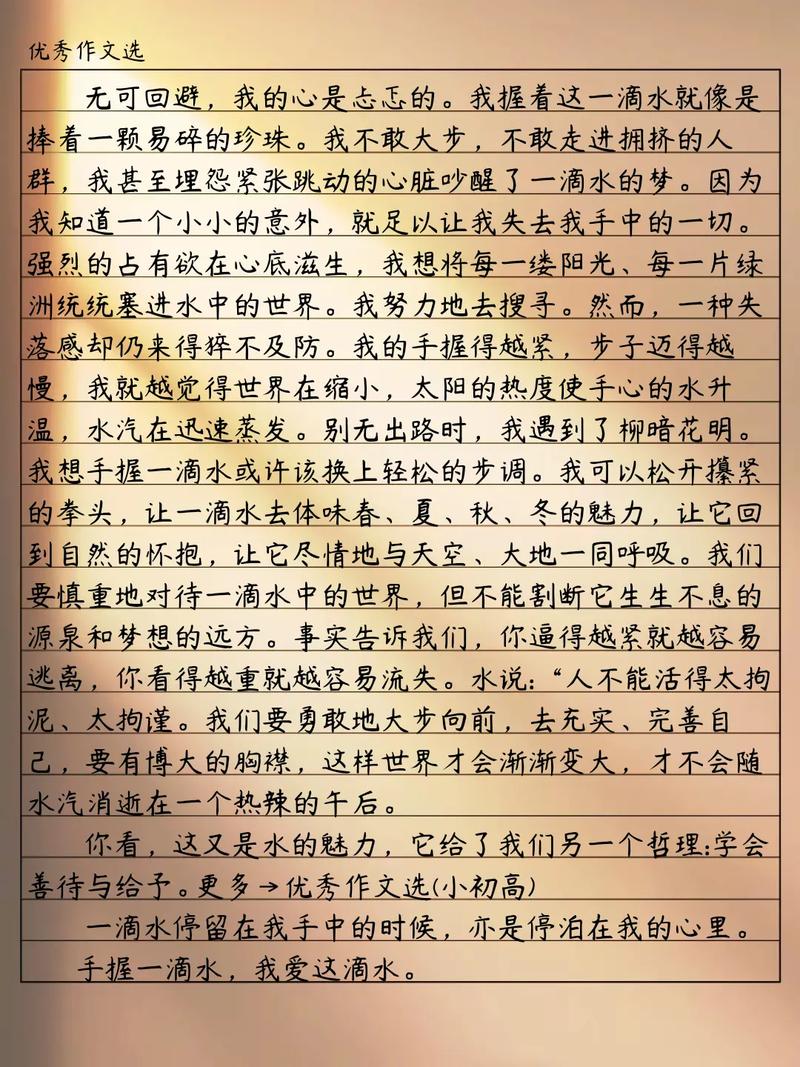 优秀作文选
无可回避，我的心是忐忑的。我握着这一滴水就像是
捧着一颗易碎的珍珠。我不敢大步，不敢走进拥挤的人
群，我甚至埋怨紧张跳动的心脏吵醒了一滴水的梦。因为
我知道一个小小的意外，就足以让我失去我手中的一切。
强烈的占有欲在心底滋生，我想将每一缕阳光、每一片绿
洲统统塞进水中的世界。我努力地去搜寻。然而，一种失
落感却仍来得猝不及防。我的手握得越紧，步子迈得越
慢，我就越觉得世界在缩小，太阳的热度使手心的水升
温，水汽在迅速蒸发。别无出路时，我遇到了柳暗花明。
我想手握一滴水或许该换上轻松的步调。我可以松开攥紧
的拳头，让一滴水去体味春、夏、秋、冬的魅力，让它回
到自然的怀抱，让它尽情地与天空、大地一同呼吸。我们
要慎重地对待一滴水中的世界，但不能割断它生生不息的
源泉和梦想的远方。事实告诉我们，你逼得越紧就越容易
逃离，你看得越重就越容易流失。水说：“人不能活得太拘
泥、太拘谨。我们要勇敢地大步向前，去充实、完善自
己，要有博大的胸襟，这样世界才会渐渐变大，才不会随
水汽消逝在一个热辣的午后。
你看，这又是水的魅力，它给了我们另一个哲理:学会
善待与给予。更多→优秀作文选(小初高)
一滴水停留在我手中的时候，亦是停泊在我的心里。
手握一滴水，我爱这滴水。